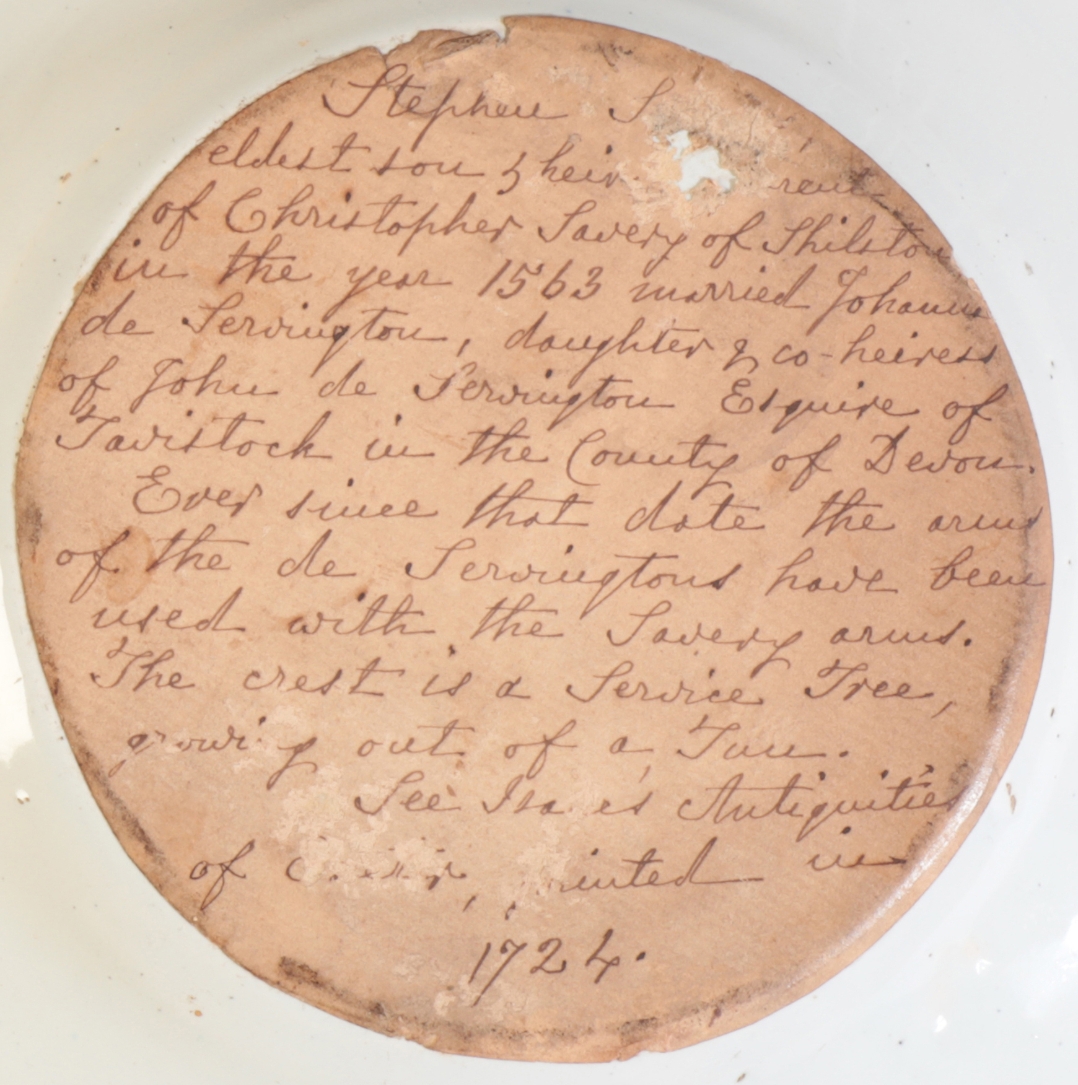 Stephen
eldest son & heir
of Christopher Savery of Shilston
in the year 1563 married Johanna
de Servington, daughter & co-heiress
of John de Servington Esquire of
Tavistock in the County of Devon.
Ever since that date the arms
of the de Servingtons have been
used with the Savery arms.
The crest is a Service Tree,
growing out of a Tun.
See Antiquities
of printed in
1724.